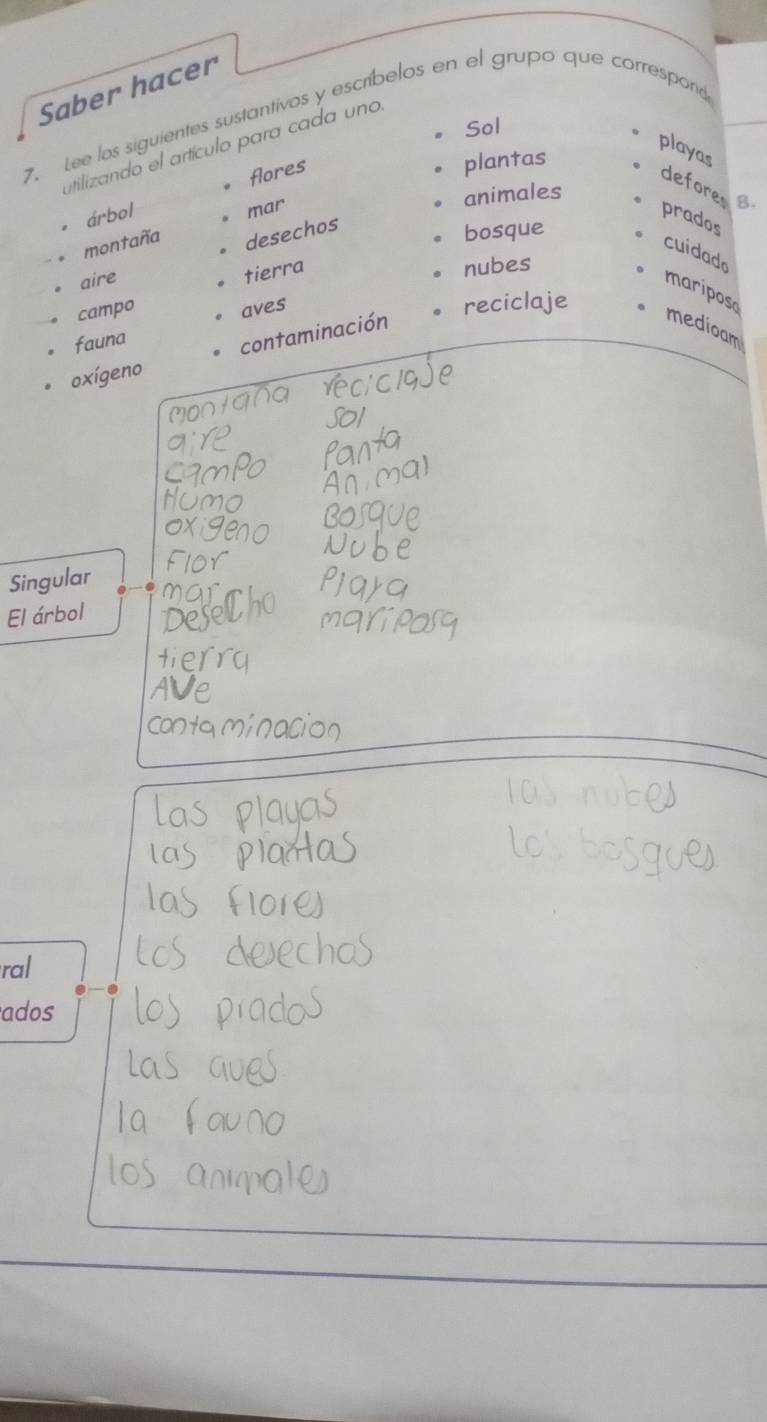 Saber hacer
7. Lee los siguientes sustantivos y escríbelos en el grupo que corresponde
utilizando el artículo para cada uno.
• árbol
• montaña
• aire
• campo
• fauna
• oxígeno
• flores
• mar
• desechos
• tierra
• aves
• contaminación
• Sol
• plantas
• animales
• bosque
• nubes
• reciclaje
• playas
• defores
• prados
• cuidado
• mariposa
• medioam
8.
Singular
El árbol
montaña
aire
campo
Humo
oxigeno
Flor
mar
Desecho
tierra
AVe
contaminacion
reciclaje
sol
Panta
Animal
Bosque
Nube
Playa
mariposa
ral
ados
las playas
las plantas
las flores
los desechos
los prados
Las aves
la fauno
los animales
las nubes
los bosques